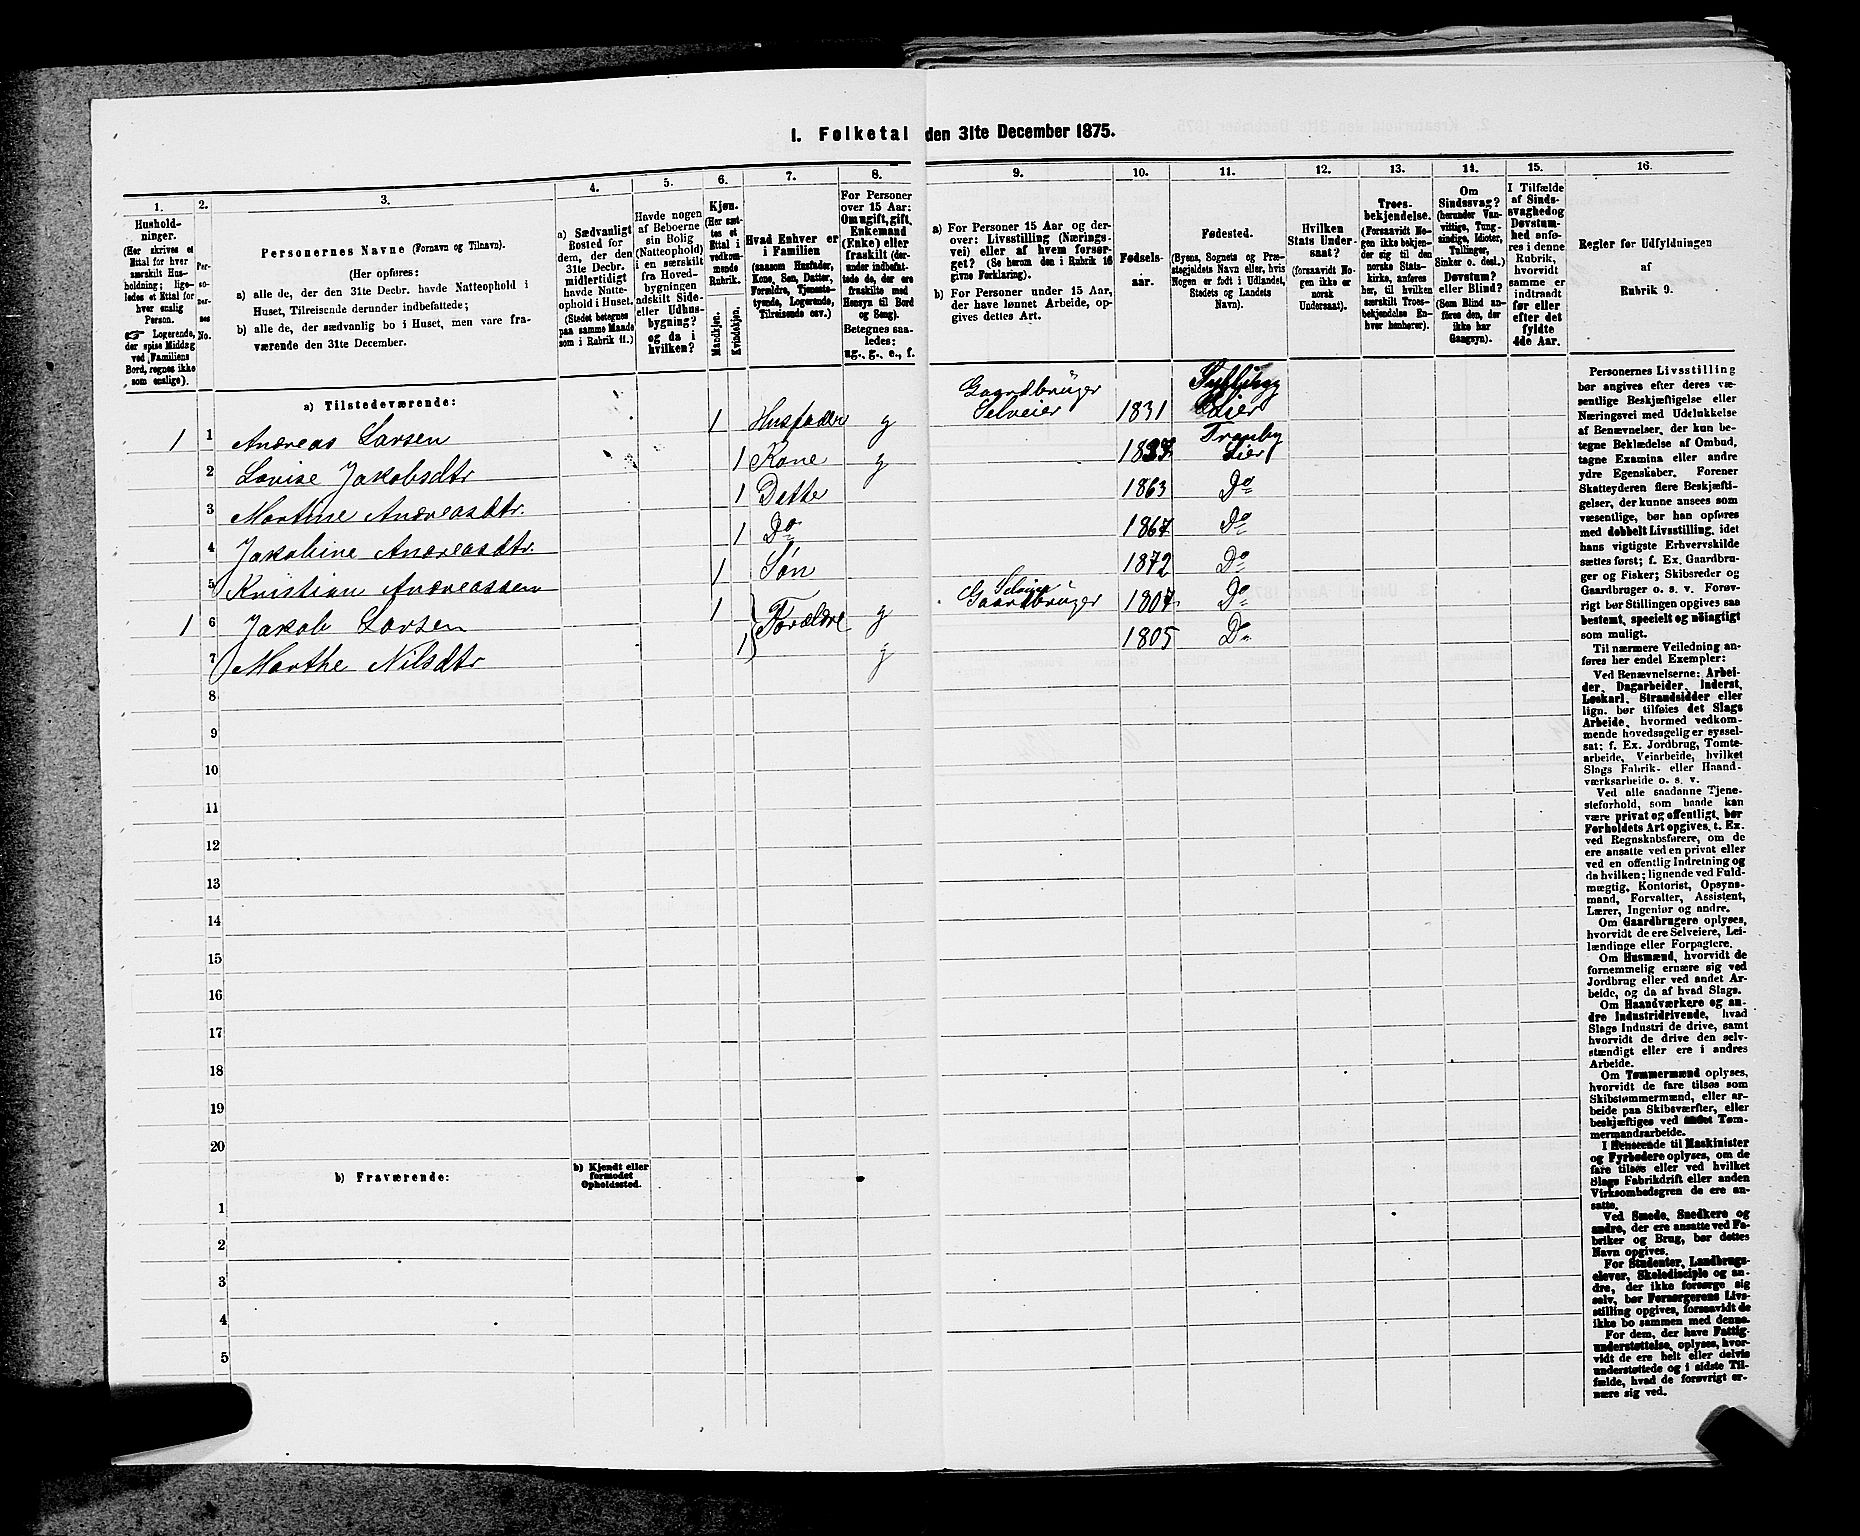 I. Folketal den 31te December 1875.
1.
Hushold-
ninger.
(Her skrives et
Ettal for hver
særskilt Hus-
holdning; lige-
ledes et Ettal for
hver enslig
Person.
☞ Logerende,
der spise Middag
ved Familiens
Bord, regnes ikke
som enslige).
2.
Per-
so-
ner-
nes
No.
3.
Personernes Navne (Fornavn og Tilnavn).
(Her opføres:
a) alle de, der den 31te Decbr. havde Natteophold i
Huset, Tilreisende derunder indbefattede;
b) alle de, der sædvanlig bo i Huset, men vare fra-
værende den 31te December.
4.
a) Sædvanligt
Bosted for
dem, der den
31te Decbr.
midlertidigt
havde Natte-
ophold i Huset.
(Stedet betegnes
paa samme Maade
som i Rubrik 11.)
5.
Havde nogen
af Beboerne
sin Bolig
(Natteophold)
i en særskilt
fra Hoved-
bygningen
adskilt Side-
eller Udhus-
bygning?
og da i
hvilken?
6.
Kjøn.
(Her sæt-
tes et
Ettal i
vedkom-
mende
Rubrik.
Mandkjøn.
Kvindekjøn.
7.
Hvad Enhver er
i Familien
(saasom Husfader,
Kone, Søn, Datter,
Forældre, Tjeneste-
tyende, Logerende,
Tilreisende osv.)
8.
For Personer
over 15 Aar:
Om ugift, gift,
Enkemand
(Enke) eller
fraskilt (der-
under indbefat-
tede de, der ere
fraskilte med
Hensyn til Bord
og Seng).
Betegnes saa-
ledes:
ug., g., e., f.
9.
a) For Personer 15 Aar og der-
over: Livsstilling (Nærings-
vei) eller af hvem forsør-
get? (Se herom den i Rubrik 16
givne Forklaring).
b) For Personer under 15 Aar,
der have lønnet Arbeide, op-
gives dettes Art.
10.
Fødsels-
aar.
11.
Fødested.
(Byens, Sognets og Præ-
stegjældets Navn eller, hvis
Nogen er født i Udlandet,
Stedets og Landets
Navn).
12.
Hvilken
Stats Under-
saat?
(forsaavidt No-
gen ikke er
norsk
Undersaat).
13.
Troes-
bekjendelse.
(Forsaavidt No-
gen ikke bekjen-
der sig til den
norske Stats-
kirke, anføres
her, til hvilken
særskilt Troes-
bekjendelse En-
hver henhører).
14.
Om
Sindssvag?
(herunder Van-
vittige, Tung-
sindige, Idioter,
Tullinger,
Sinker o. desl.)
Døvstum?
eller Blind?
(Som Blind an-
føres den, der
ikke har
Gangsyn).
15.
I Tilfælde
af Sinds-
svaghed og
Døvstum-
hed anfø-
res i denne
Rubrik,
hvorvidt
samme er
indtraadt
før eller
efter det
fyldte
4de Aar.
16.
Regler for Udfyldningen
af
Rubrik 9.
a) Tilstedeværende:
1 1 Andreas Larsen 1 Husfader g Gaardbruger Selveier 1831 Lier
2 Lovise Jakobsdtr 1 Kone g Tranby Lier
3 Martine Andreasdtr. 1 Datte 1863 Do
4 Jakobine Andreasdtr. 1 Do 1867 Do
5 Kristian Andreassen 1 Søn 1872 Do
1 6 Jakob Larsen 1 Forældre g Selveier Gaardbruger 1807 Do
7 Marthe Nilsdtr 1 g 1805 Do
8
9
10
11
12
13
14
15
16
17
18
19
20
b) Fraværende:
b) Kjendt eller
formodet
Opholdssted.
1
2
3
4
5
Personernes Livsstilling
bør angives efter deres væ-
sentlige Beskjæftigelse eller
Næringsvei med Udelukkelse
af Benævnelser, der kun be-
tegne Beklædelse af Ombud,
tagne Examina eller andre
ydre Egenskaber. Forener
Skatteyderen flere Beskjæfti-
gelser, der kunne ansees som
væsentlige, bør han opføres
med dobbelt Livsstilling, idet
hans vigtigste Erhvervskilde
sættes først; f. Ex. Gaardbru-
ger og Fisker; Skibsreder og
Gaardbruger o. s. v. Forøv-
rigt bør Stillingen opgives saa
bestemt, specielt og nøiagtigt
som muligt.
Til nærmere Veiledning an-
føres her endel Exempler:
Ved Benævnelserne: Arbei-
der, Dagarbeider, Inderst,
Løskarl, Strandsidder eller
lign. bør tilføies det Slags
Arbeide, hvormed vedkom-
mende hovedsagelig er syssel-
sat; f. Ex. Jordbrug, Tomte-
arbeide, Veiarbeide, hvilket
Slags Fabrik- eller Haand-
værksarbeide o. s. v.
Ved alle saadanne Tjene-
steforhold, som baade kan
være privat og offentligt, bør
Forholdets Art opgives, t. Ex.
ved Regnskabsførere, om de
ere ansatte ved en privat eller
ved en offentlig Indretning og
da hvilken; lignende ved Fuld-
mægtig, Kontorist, Opsyns-
mand, Forvalter, Assistent,
Lærer, Ingeniør og andre.
Om Gaardbrugere oplyses,
hvorvidt de ere Selveiere, Lei-
lændinge eller Forpagtere.
Om Husmænd, hvorvidt de
fornemmelig ernære sig ved
Jordbrug eller ved andet Ar-
beide, og da af hvad Slags.
Om Haandværkere og an-
dre Industridrivende, hvad
Slags Industri de drive, samt
hvorvidt de drive den selv-
stændigt eller ere i andres
Arbeide.
Om Tømmermænd oplyses,
hvorvidt de fare tilsøs som
Skibstømmermænd, eller ar-
beide paa Skibsværfter, eller
beskjæftiges ved andet Tøm-
mermandsarbeide.
I Henseende til Maskinister
og Fyrbødere oplyses, om de
fare tilsøs eller ved hvilket
Slags Fabrikdrift eller anden
Virksomhedsgren de ere an-
satte.
Ved Smede, Snedkere og
andre, der ere ansatte ved Fa-
briker og Brug, bør dettes
Navn opgives.
For Studenter, Landbrugs-
elever, Skoledisciple og an-
dre, der ikke forsørge sig
selv, bør Forsørgerens Livs-
stilling opgives, forsaavidt de
ikke bo sammen med denne.
For dem, der have Fattig-
understøttelse, oplyses, hvor-
vidt de ere helt eller delvis
understøttede og i sidste Til-
fælde, hvad de forøvrigt er-
nære sig ved.